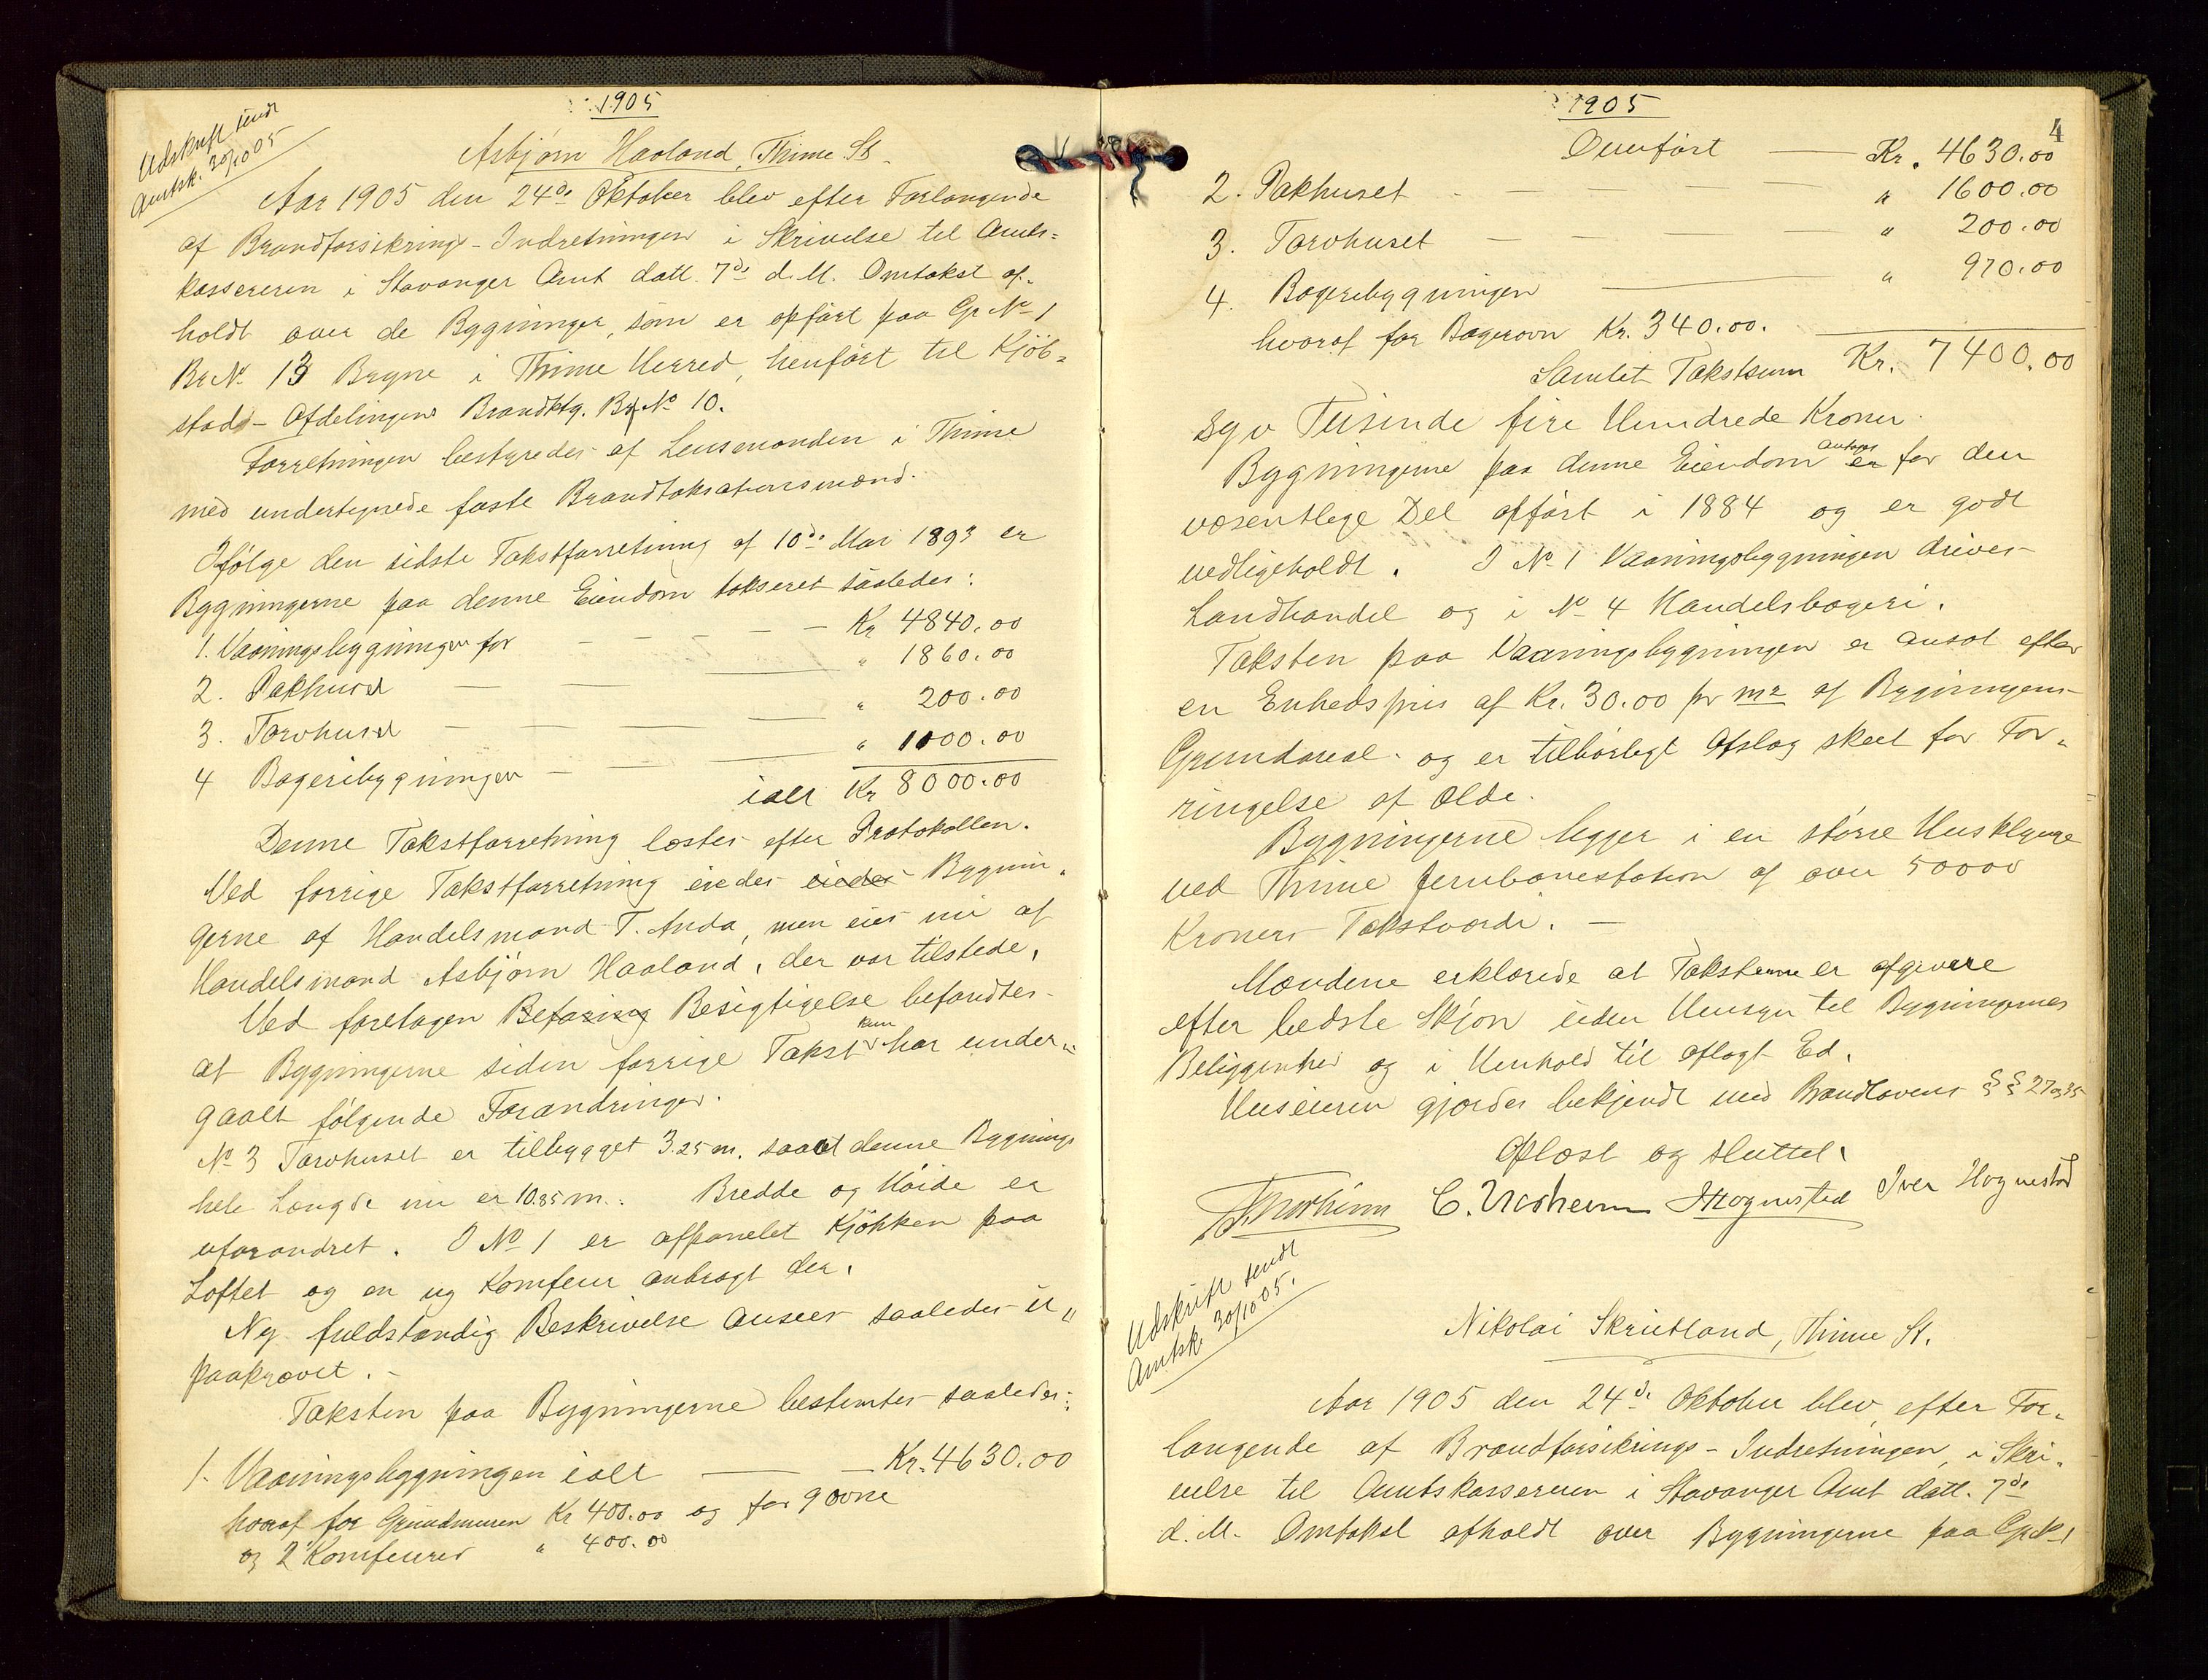 1905
Udskrift sendt
Amtsk. 30/10 05
Asbjørn Haaland, Thime St.
Aar 1905 den 24de Oktober blev efter Forlangende
af Brandforsikrings-Indretningen i Skrivelse til Amts=
kassereren i Stavanger Amt datt. 7de d. M. Omtakst af=
holdt over de Bygninger, som er opført paa Gr No 1
Br No 13 Bryne i Thime Herred, henført til Kjöb=
stads-Afdelingens Brandktg. Br No 10.
Forretningen bestyredes af Lensmanden i Thime
med undertegnede faste Brandtaksationsmænd.
Ifölge den sidste Takstforretning af 10de Mai 1893 er
Bygningerne paa denne Eiendom takseret saaledes:
1. Vaaningsbygningen for Kr 4840.00
2. Pakhuset " 1860.00
3. Torvhuset " 200.00
4 Bageribygningen " 1100.00
ialt Kr 8000.00
Denne Takstforretning læstes efter Protokollen.
Ved forrige Takstforretning eiedes eiedes Bygnin=
gerne af Handelsmand T. Anda, men eies nu af
Handelsmand Asbjørn Haaland, der var tilstede.
Ved foretagen Befaring Besigtigelse befandtes
at Bygningerne siden forrige Takst kun har under=
gaaet følgende Forandringer.
No 3 Torvhuset er tilbygget 3.25 m. saa at denne Bygnings
hele Længde nu er 10.85 m. Bredde og Höide er
uforandret. I No 1 er afpanelet Kjøkken paa
Loftet og en ny Komfeur anbragt der.
Ny fuldstændig Beskrivelse ansees saaledes u=
paakrævet.
Taksten paa Bygningerne bestemtes saaledes:
1. Vaaningsbygningen ialt Kr. 4630.00
hvoraf for Grundmuren Kr 400.00 og for 9 ovne
og 2 Komfeurer " 400.00
1905
4
Overført Kr. 4630.00
2. Pakhuset " 1600.00
3. Torvhuset " 200.00
4. Bageribygningen " 970.00
hvoraf for Bagerovn Kr. 340.00.
Samlet Takstsum Kr. 7400.00
Syv Tusinde fire Hundrede Kroner.
Bygningerne paa denne Eiendom er for den
væsentlige Del opført i 1884 og er godt
vedligeholdt. I No 1 Vaaningsbygningen drives
Landhandel og i No 4 Handelsbageri.
Taksten paa Vaaningsbygningen er ansat efter
en Enhedspris af Kr. 30.00 pr m2 af Bygningens
Grundareal og er tilbørligt Afslag skeet for For=
ringelse af Ælde.
Bygningerne ligger i en större Husklynge
ved Thime Jernbanestation af over 50000
Kroners Takstværdi.
Mændene erklærede at Taksterne er afgivne
efter bedste Skjøn uden Hensyn til Bygningernes
Beliggenhed og i Henhold til aflagt Ed.
Huseieren gjordes bekjendt med Brandlovens §§ 27 og 35
Oplæst og sluttet.
C. Undheim Hognestad Iver Hognestad
Udskrift sendt
Amtsk. 30/10 05.
Nikolai Skrudland, Thime St.
Aar 1905 den 24de Oktober blev efter For=
langende af Brandforsikrings-Indretningen, i Skri=
velse til Amtskassereren i Stavanger Amt datt. 7de
d. M. Omtakst afholdt over Bygningerne paa Gr No 1